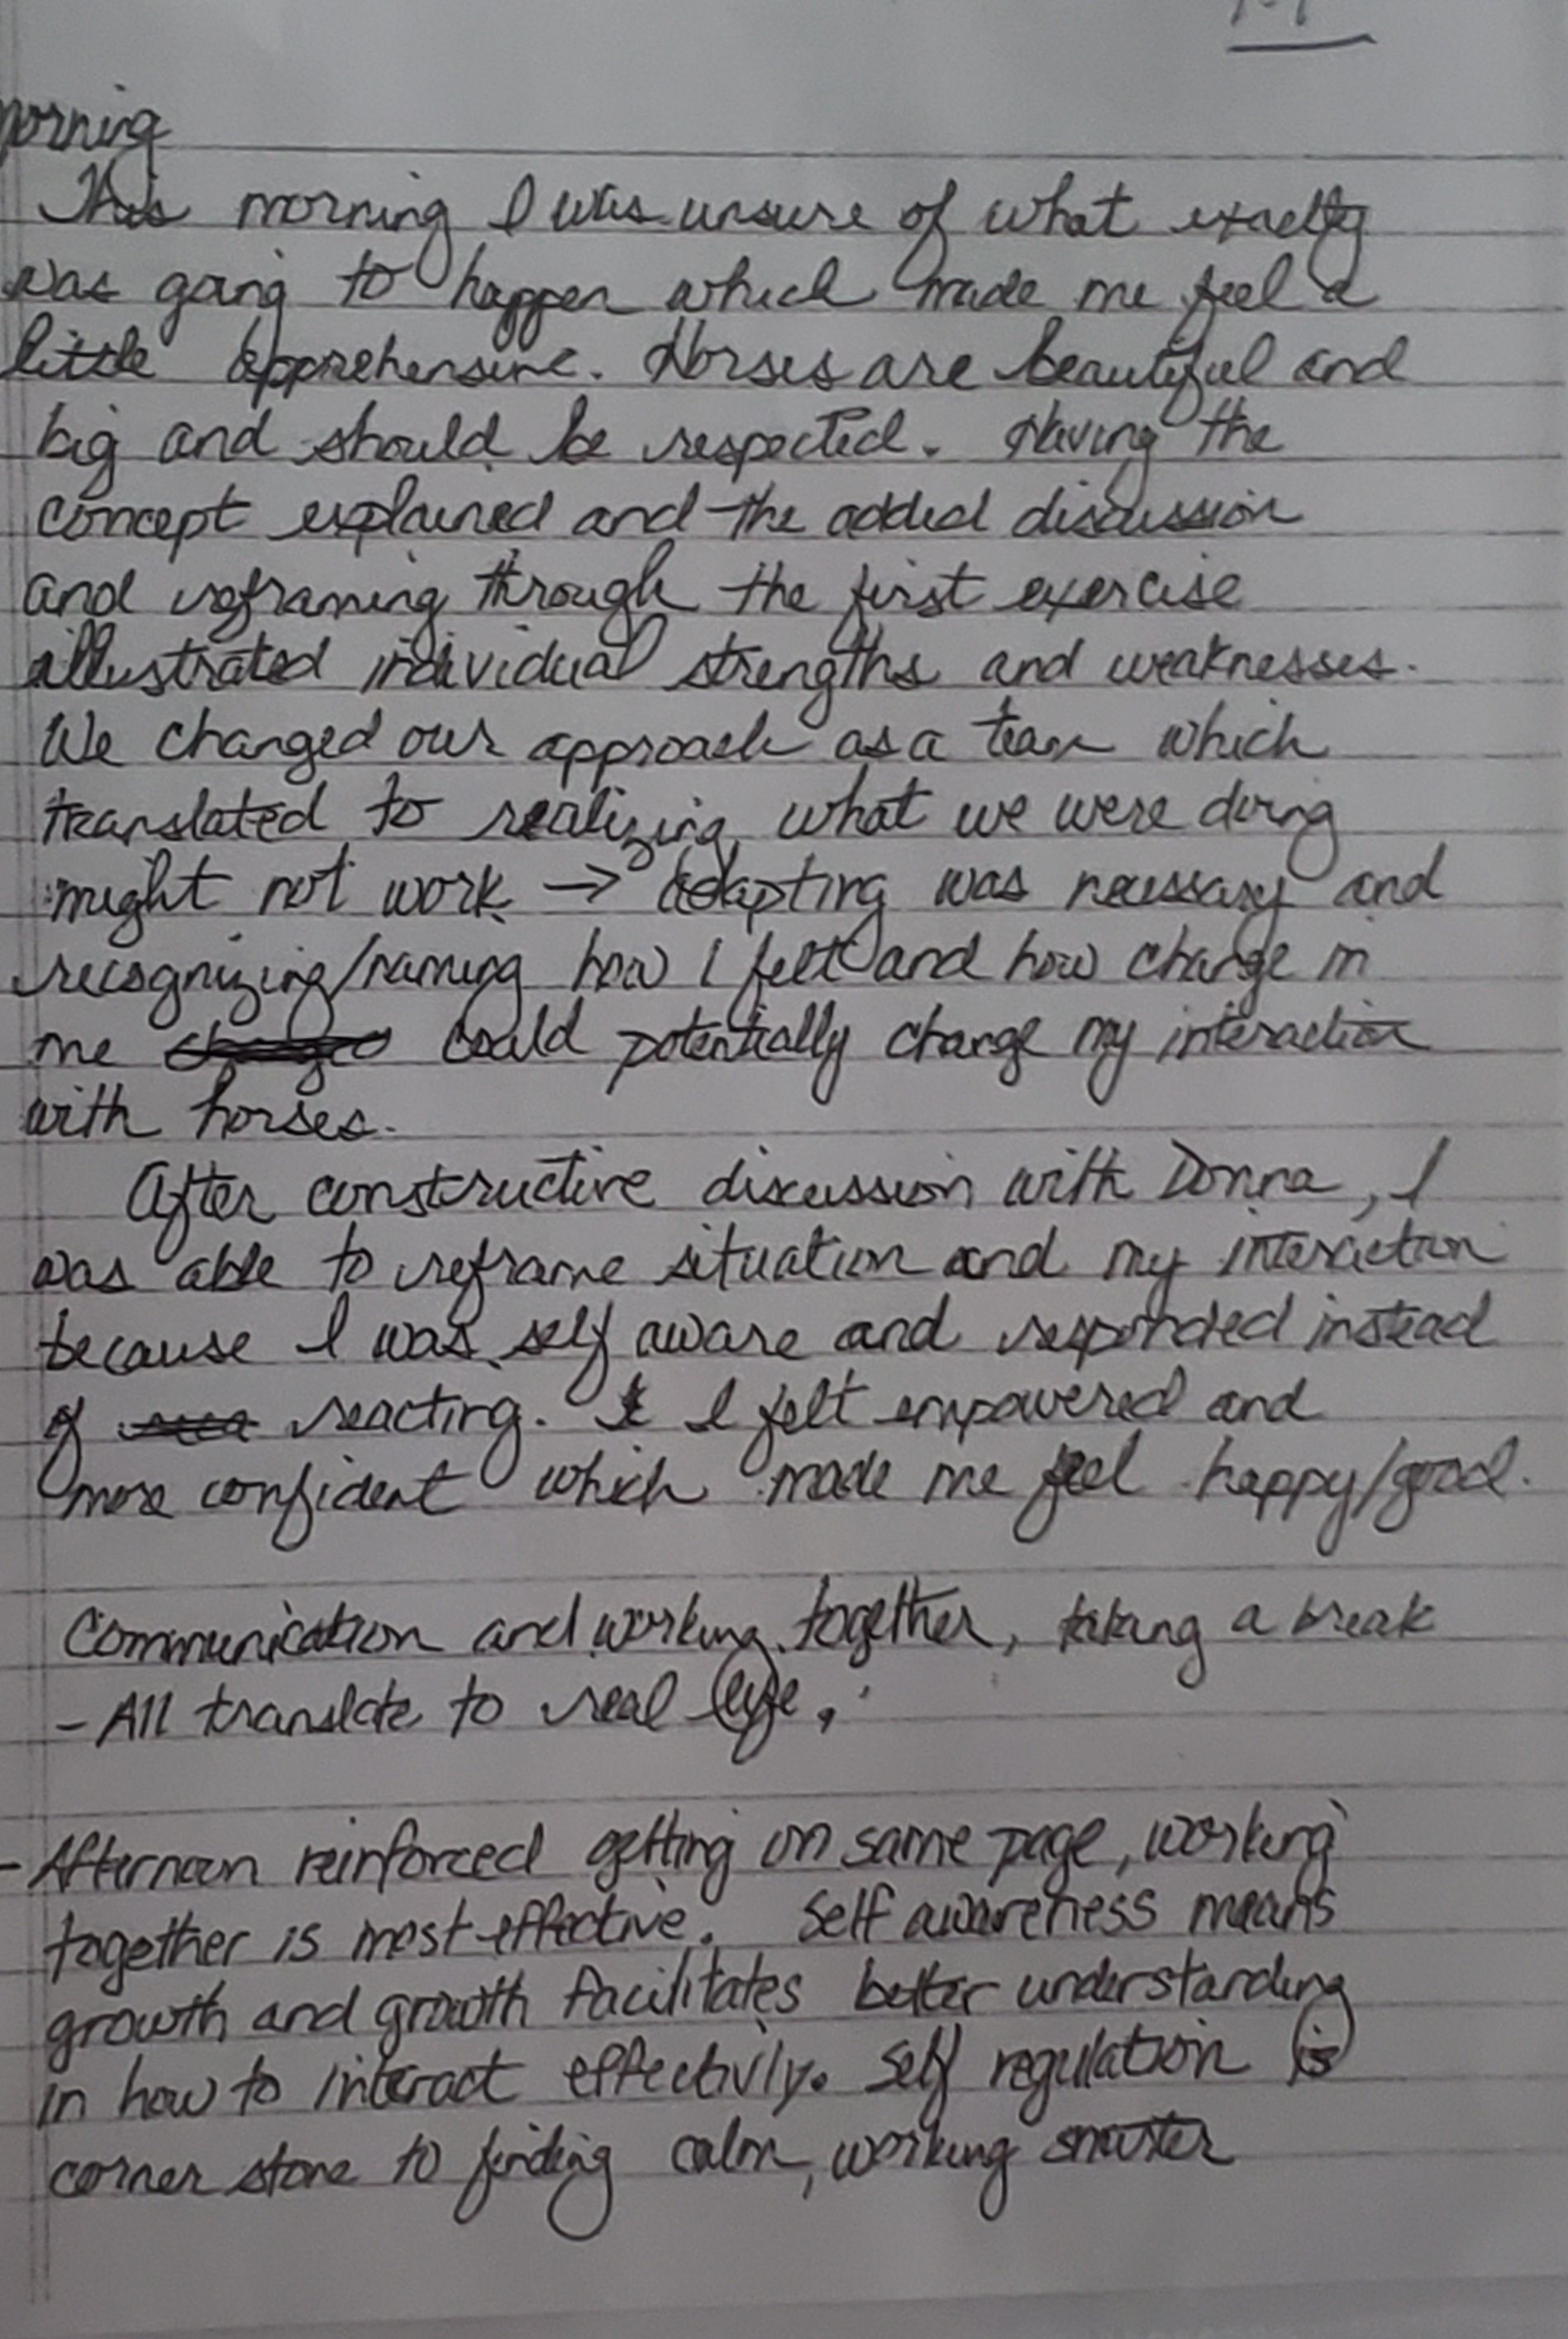 morning
This morning I was unsure of what exactly
was going to happen which made me feel a
little apprehensive. Horses are beautiful and
big and should be respected. Having the
concept explained and the added discussion
and reframing through the first exercise
illustrated individual strengths and weaknesses.
We changed our approach as a team which
translated to realizing what we were doing
might not work → adapting was necessary and
recognizing/naming how I felt and how change in
me could potentially change my interaction
with horses.
After constructive discussion with Donna, I
was able to reframe situation and my interaction
because I was self aware and responded instead
of reacting. I felt empowered and
more confident which made me feel happy/good.
Communication and working together, taking a break
- All translate to real life.
- Afternoon reinforced getting on same page, working
together is most effective. Self awareness means
growth and growth facilitates better understanding
in how to interact effectivily. Self regulation is
corner stone to finding calm, working smarter